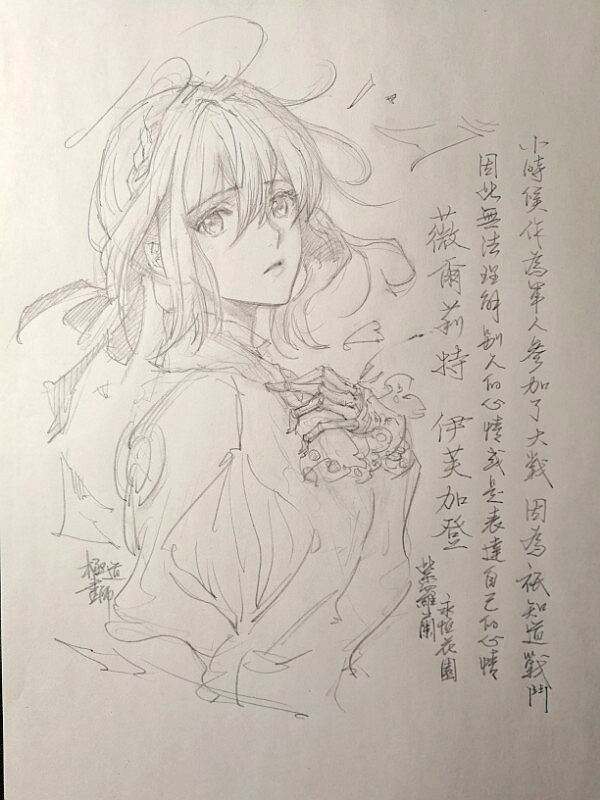 小時候作為軍人參加了大戰 因為祇知道戰鬥
因此無法理解別人的心情或是表達自己的心情
薇爾莉特 伊芙加登
永恒花園
紫羅蘭
極道
畫師